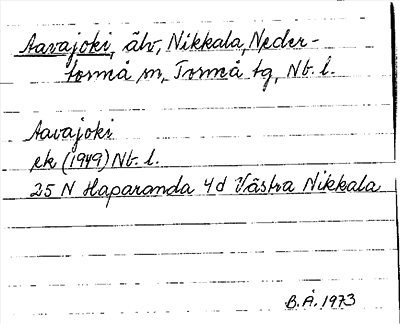 Aavajoki, älv, Nikkala, Neder-
tornå sn, Torneå tg, Nb. l.
Aavajoki
ek (1949) Nb. l.
25 N Haparanda 4d Västra Nikkala
B.Å. 1973